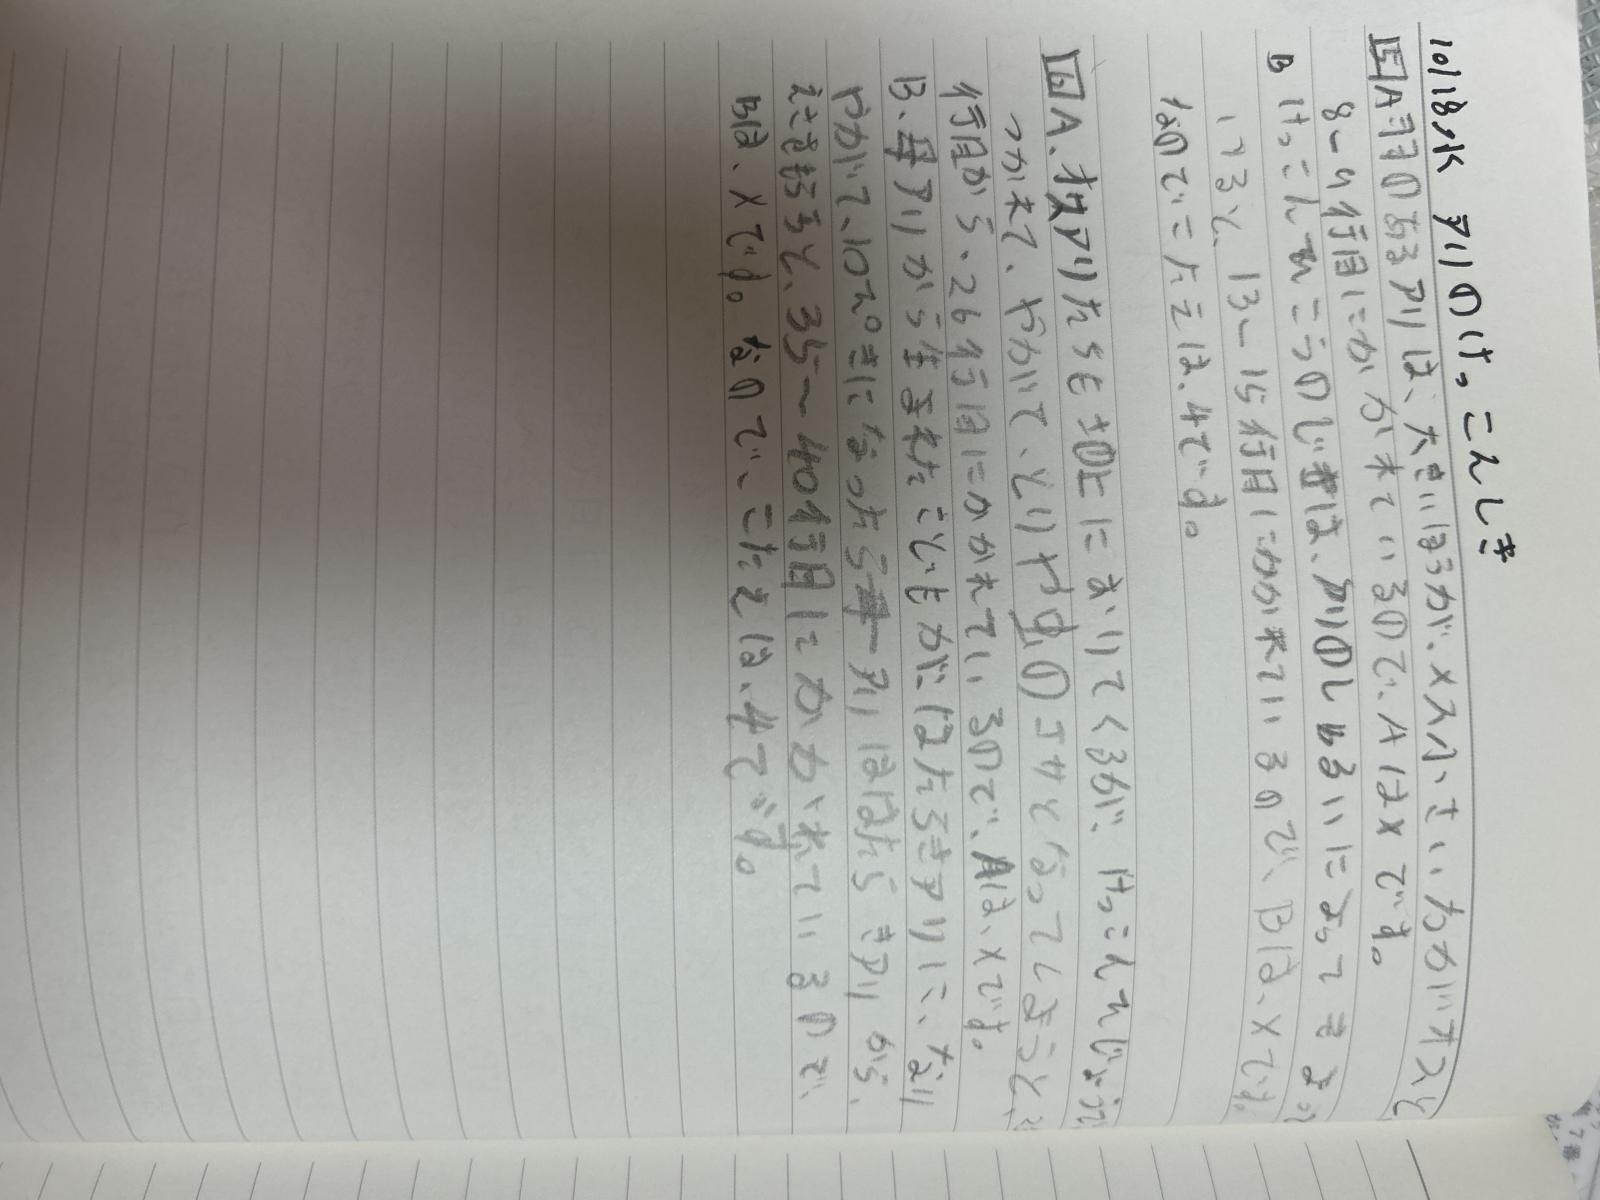 10/18水 アリのけっこんしき
5 A羽のあるアリは、大きいほうが、メス小さいわがいオスと
8〜9行目にかかれているので、Aはxです。
B けっこんひこうのじきは、アリのしゅるいによってきまっ
いると、13〜15行目にかかれているので、Bは、xです。
なのでこたえは、4です。
6 A、オスアリたちも地上におりてくるが、けっこんひこうで
つかれて、やがて、とりや虫のエサとなってしまうと、2
行目から、26行目にかかれているので、Aは、xです。
B、母アリから生まれたこどもがはたらきアリに、なり
やがて、10ぴきになったらアリははたらきアリから、
えさをもらうと、35〜40行目にかかれているので、
Bは、xです。なので、こたえは、4です。